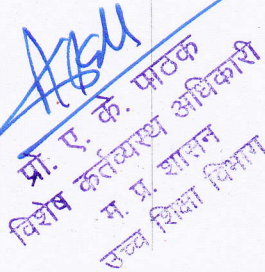 प्रो. ए. के. पाठक
विशेष कर्तव्यस्थ अधिकारी
म. प्र. शासन
उच्च शिक्षा विभाग